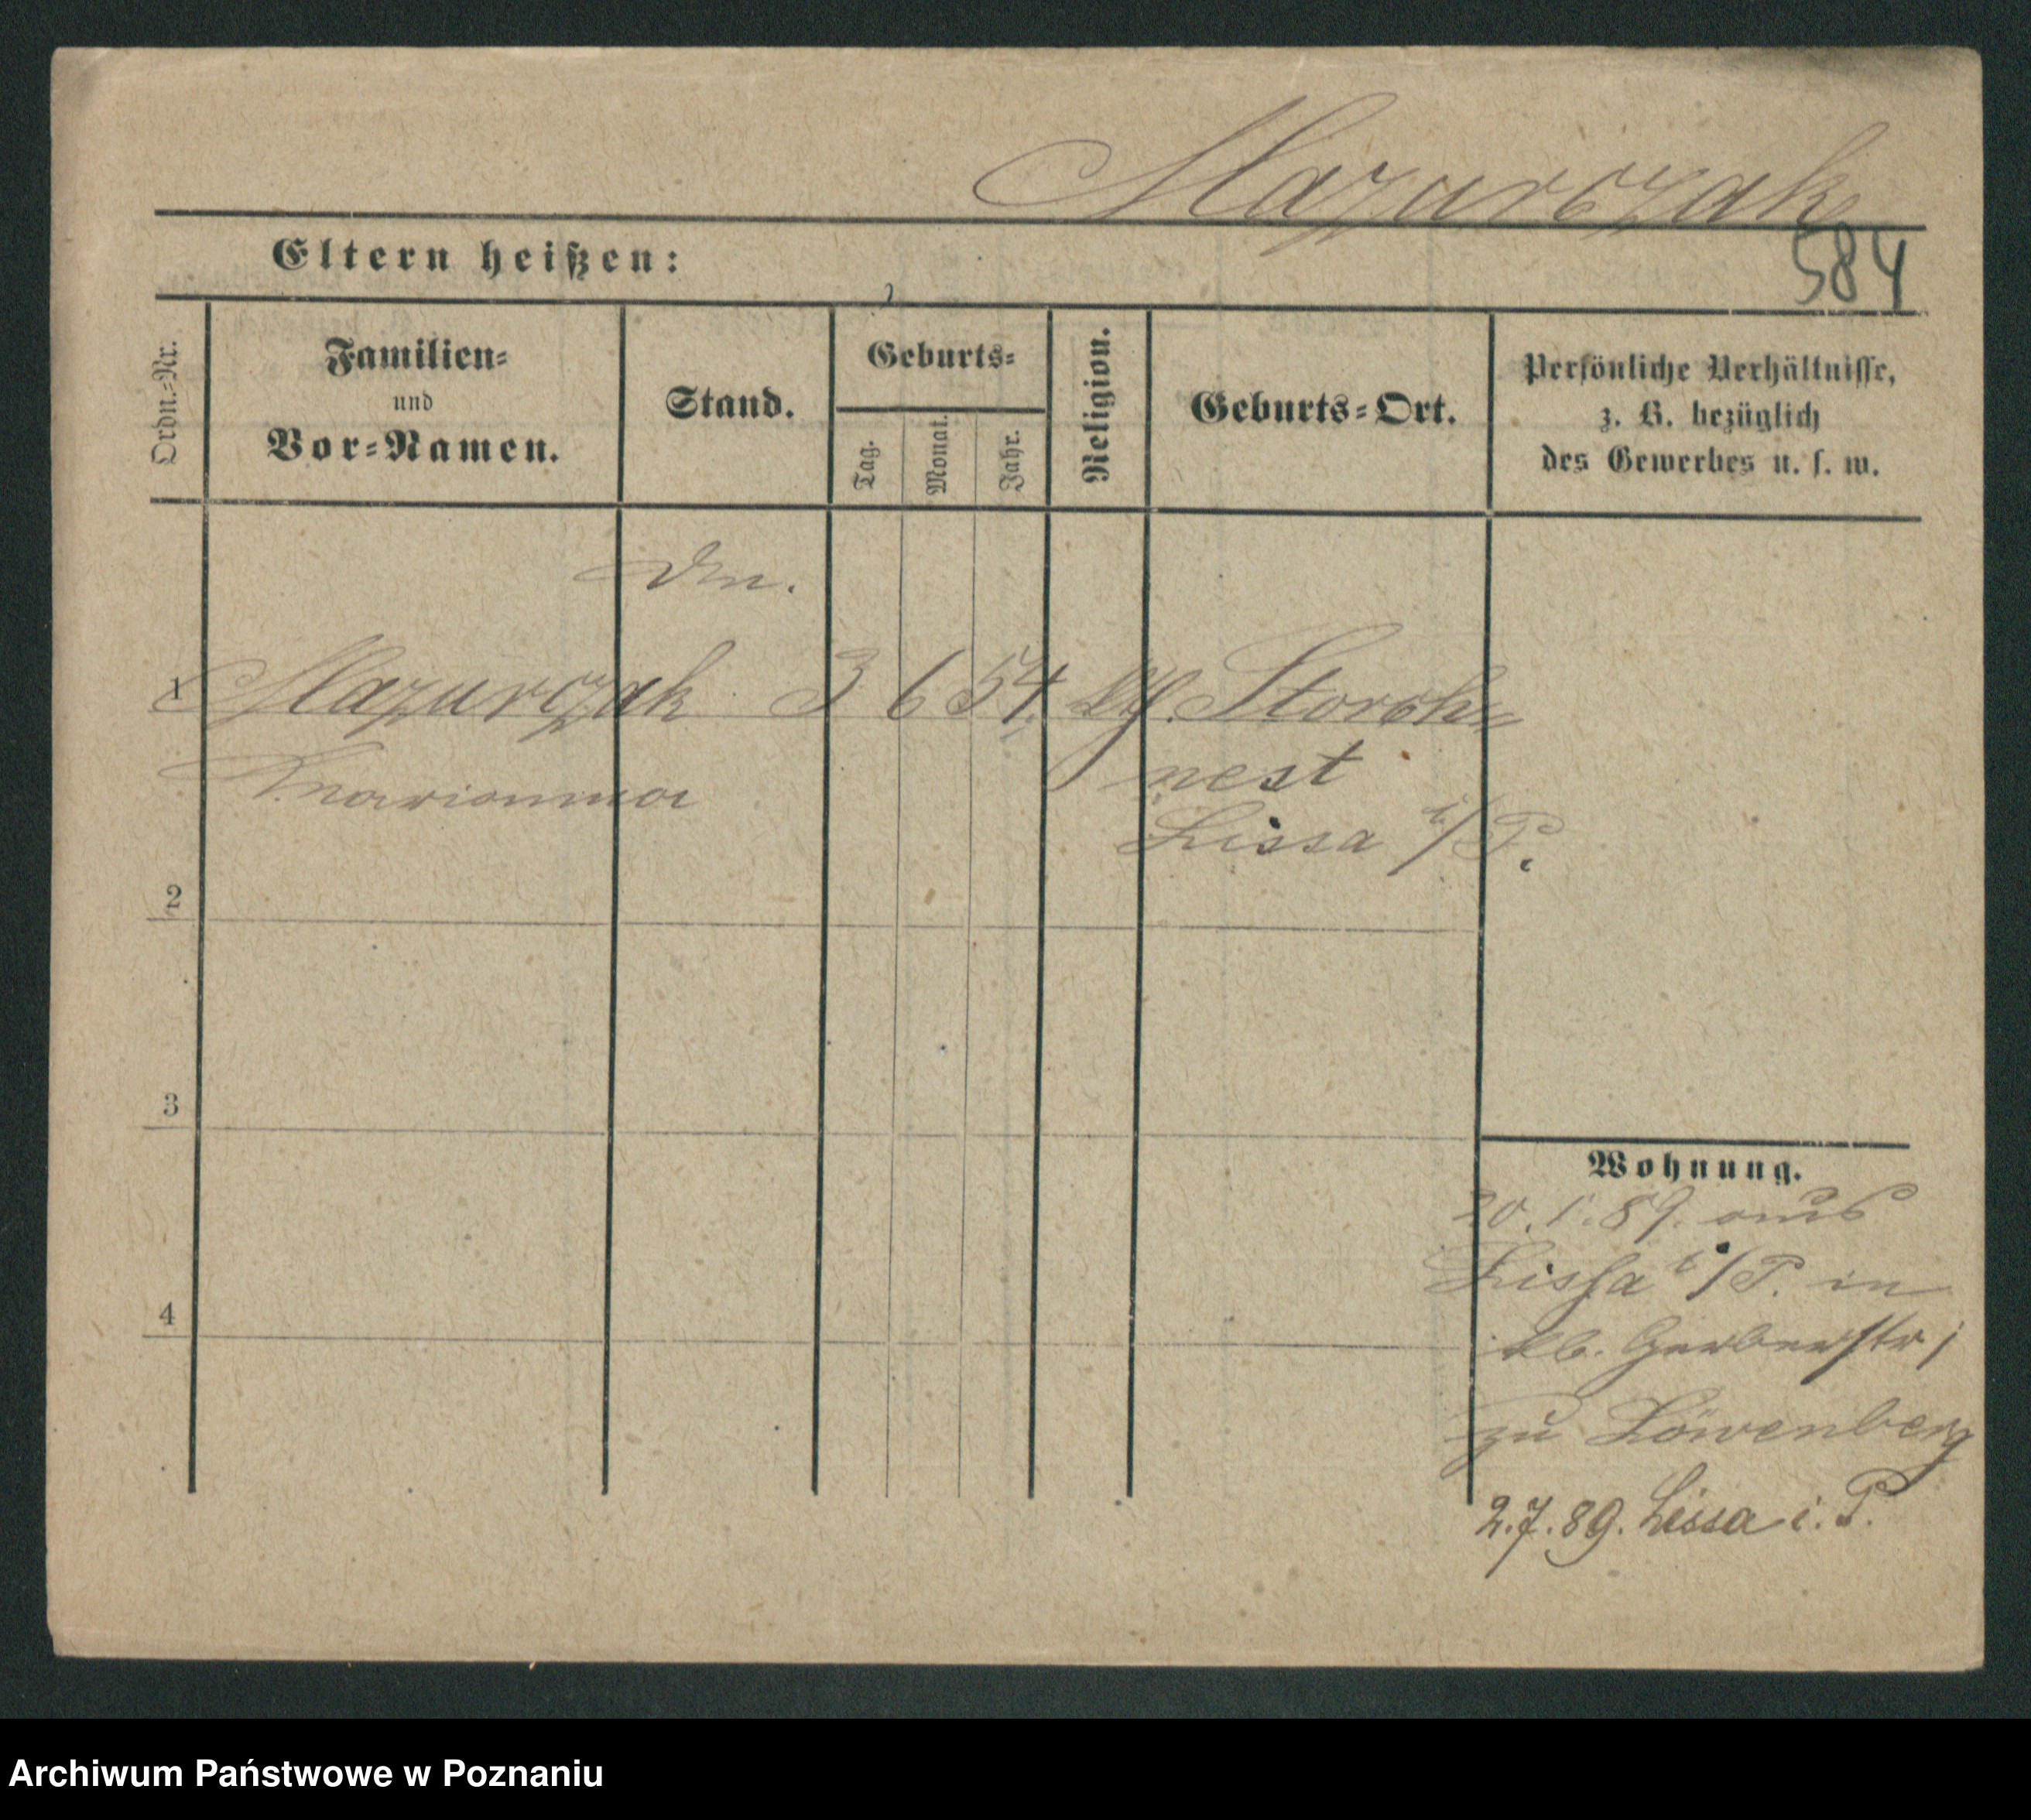 Mazurczak
584
Eltern heißen:
Ordn.-Nr.
Familien-
und
Vor-Namen.
Stand.
Geburts-
Tag.
Monat.
Jahr.
Religion.
Geburts-Ort.
Persönliche Verhältnisse,
z. B. bezüglich
des Gewerbes u. s. w.
1 Mazurczak 3 6 54. Storch-
Marianna nest
Lissa i/P.
2
3
4
Wohnung.
20.1.89. aus
Lissa i/P. in
Gerberstr
zu Löwenberg
2.7.89. Lissa i. P.
Archiwum Państwowe w Poznaniu